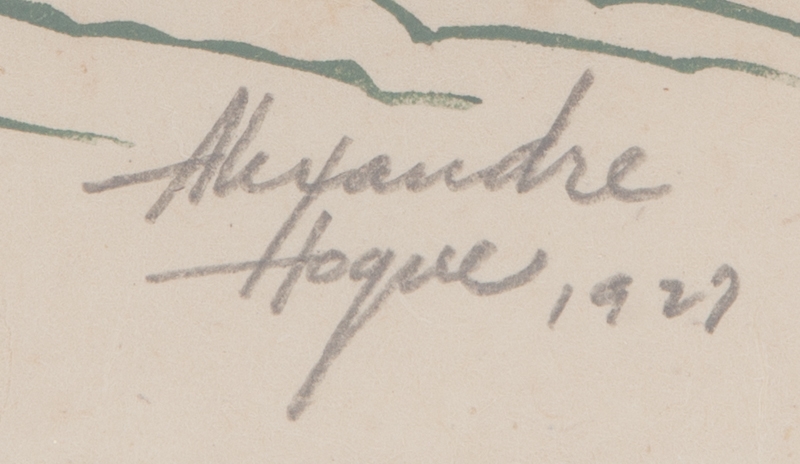 Alexandre
Hogue, 1927